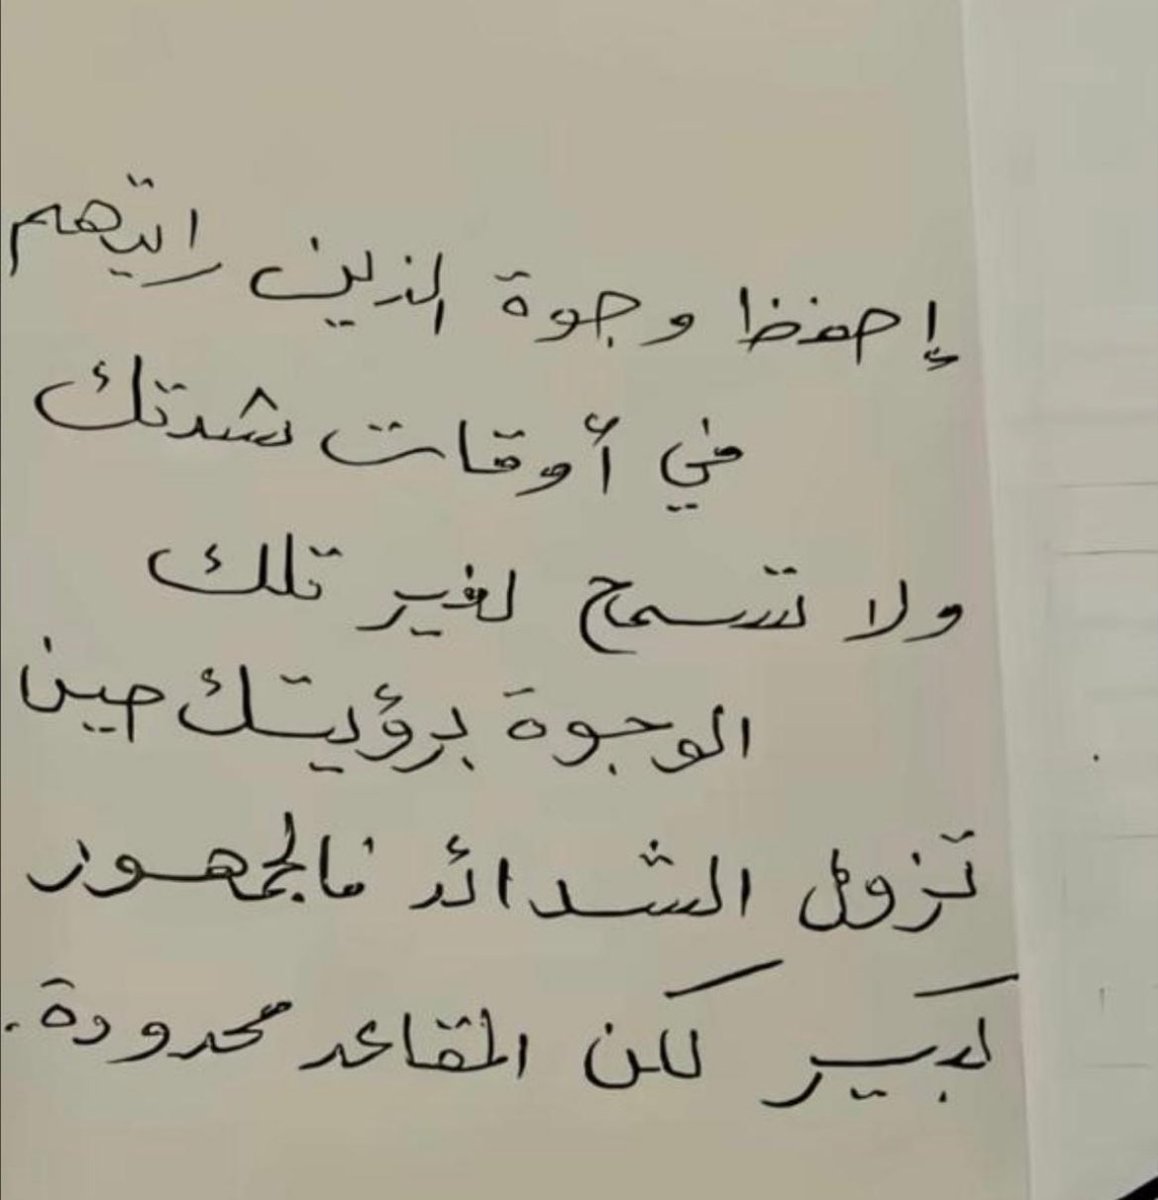 إحفظ وجوة الذين راتيهم
في أوقات شدتك
ولا تسمح لغير تلك
الوجوة برؤيتك حين
تزول الشدائد فالجمهور
كبير لكن المقاعد محدودة.